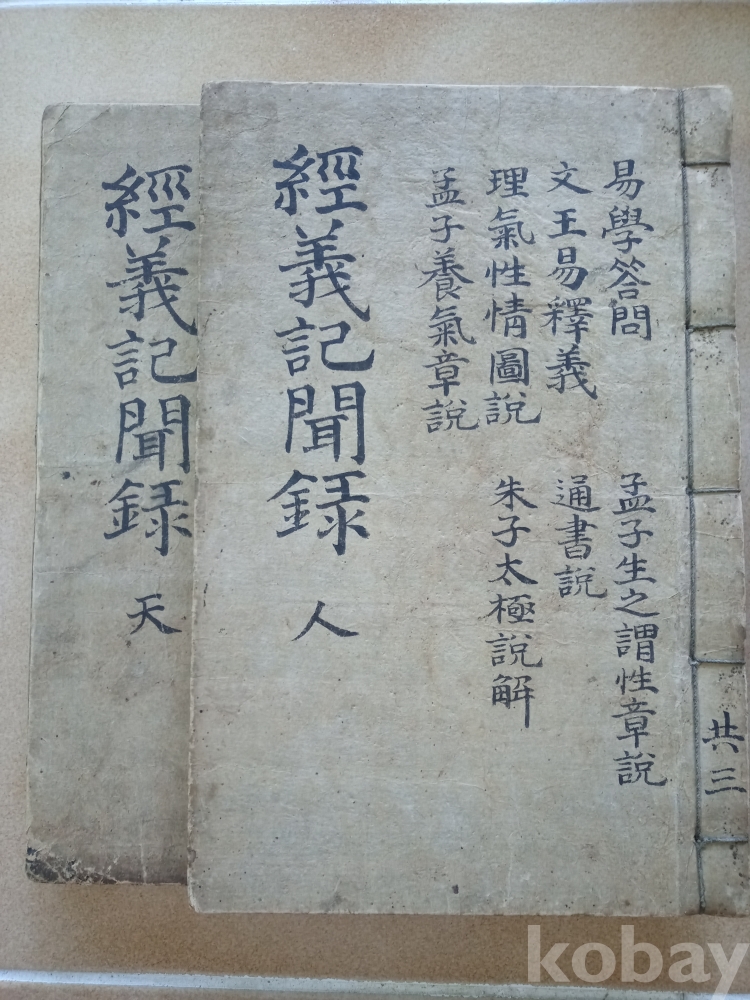 共三
易學答問
孟子生之謂性章說
文王易釋義
通書說
理氣性情圖說
朱子太極說解
孟子養氣章說
經義記聞録
人
經義記聞録
天
kobay